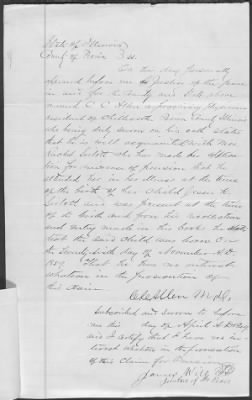 State of Illinois
County of Peoria } SS.
On this day personally
appeared before me a Justice of the Peace
in and for the County and State above
named C C Allen a practicing Physician
resident of Chillicothe Peoria County Illinois
who being duly sworn on his oath states
that he is well acquainted with Mrs
Rachel who has made application
for increase of Pension that he
attended her in her illness at the time
of the birth of her Child
and was present at the time
of its birth and from his recollection
and entry made in his books he states
that the said Child was born on
the Twenty sixth day of November A.D.
that he has no interest
whatever in the prosecution of
this claim
C C Allen M.D.
Subscribed and sworn to before
me this day of April A.D.
and I certify that I have no in
terest whatever in the prosecution
of this Claim for Pension
James
Justice of the Peace